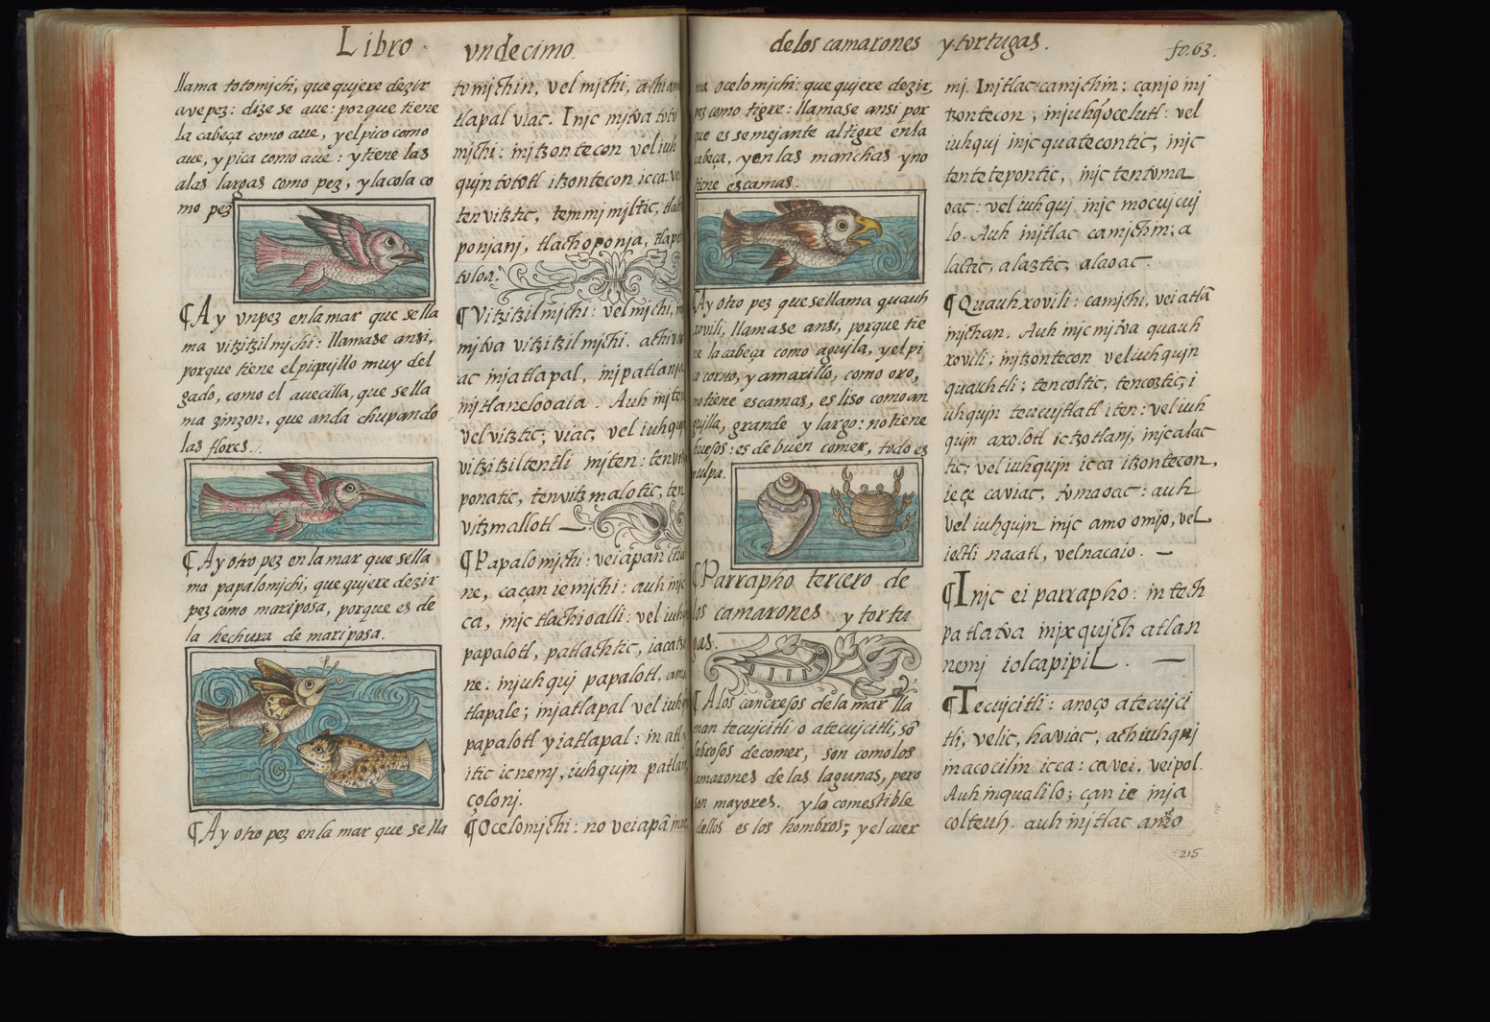 Libro vndecimo.
llama totomichi, que quiere dezir
ave pez: dize se aue: porque tiene
la cabeça como aue, y el pico como
aue, y pica como aue: y tiene las
alas largas como pez, y la cola co
mo pez
¶ Ay vn pez en la mar que se lla
ma vitzitzilmichi: llamase ansi,
porque tiene el piquillo muy del
gado, como el auecilla, que se lla
ma zinzon, que anda chupando
las flores.
¶ Ay otro pez en la mar que se lla
ma papalomichi, que quiere dezir
pez como mariposa, porque es de
la hechura de mariposa.
¶ Ay otro pez en la mar que se lla
tomichin, vel michi, achi
tlapal viac. Injc mitoa toto
michi: injtzontecon vel iuh
quin tototl itzontecon icca:
tenvitztic, temmimiltic,
ponjanj, tlachoponja,
toloa.
¶ Vitzitzilmichi: vel michi,
mitoa vitzitzilmichi. achi
ac injatlapal, injpatlanja
injtlaneloaia. Auh injten
vel vitztic, viac, vel iuhquin
vitzitziltentli injten: ten
ponatic, tenvitzmalotic, ten
vitzmallotl
¶ Papalomichi: vei apan cha
ne, caçan ie michi: auh injc
ca, injc tlachioalli: vel iuh
papalotl, patlachtic,
ne: injuhquj papalotl, ama
tlapale; injatlapal vel iuh
papalotl yiatlapal: in atl
itic ic nemj, iuhquin patlan
çolonj.
¶ Ocelomichi: no vei apã
de los camarones y tortugas. fo. 63.
ma ocelomichi: que quiere dezir,
pez como tigre: llamase ansi por
que es semejante al tigre en la
cabeça, y en las manchas y no
tiene escamas.
Ay otro pez que se llama quauh
xovili, llamase ansi, porque tie
ne la cabeça como aguila, y el pi
co corvo, y amarillo, como oro,
no tiene escamas, es liso como an
guilla, grande y largo: no tiene
huesos: es de buen comer, todo es
pulpa.
¶ Parrapho tercero de
los camarones y tortu
gas.
¶ A los cangrejos de la mar lla
man tecujcitli o atecujcitli, sõ
sabrosos de comer, son como los
camarones de las lagunas, pero
son mayores. y lo comestible
dellos es los hombros; y el cuer
mj. Injtlac camjchin; canjo inj
tzontecon, injuhqujocelutl: vel
iuhquj injc quatecontic, injc
tentetepontic, injc tentoma
oac: vel iuhquj injc mocujcuj
lo. Auh injtlac camjchin; a
lactic, alaztic, alaoac.
¶ Quauhxovili: camjchi, vei atlã
mjchan. Auh injc mitoa quauh
xovili: injtzontecon vel iuhqujn
quauhtli; tencoltic, tencoztic; i
uhqujn teucujtlatl iten: vel iuh
qujn axolotl ic tzotlanj, injc alac
tic; vel iuhqujn icca itzontecon,
ieçe caviac, tomaoac: auh
vel iuhqujn injc amo omjo, vel
ioctli nacatl, vel nacaio.
¶ Injc ei parrapho: intech
patlatoa injxqujch atlan
nemj iolcapipil.
¶ Tecujcitli: anoço atecujci
tli; velic, haviac, achiuhquj
inacocilin icca: ca vei, veipol.
Auh inqualilo; çan ie inja
colteuh. auh injtlac
215